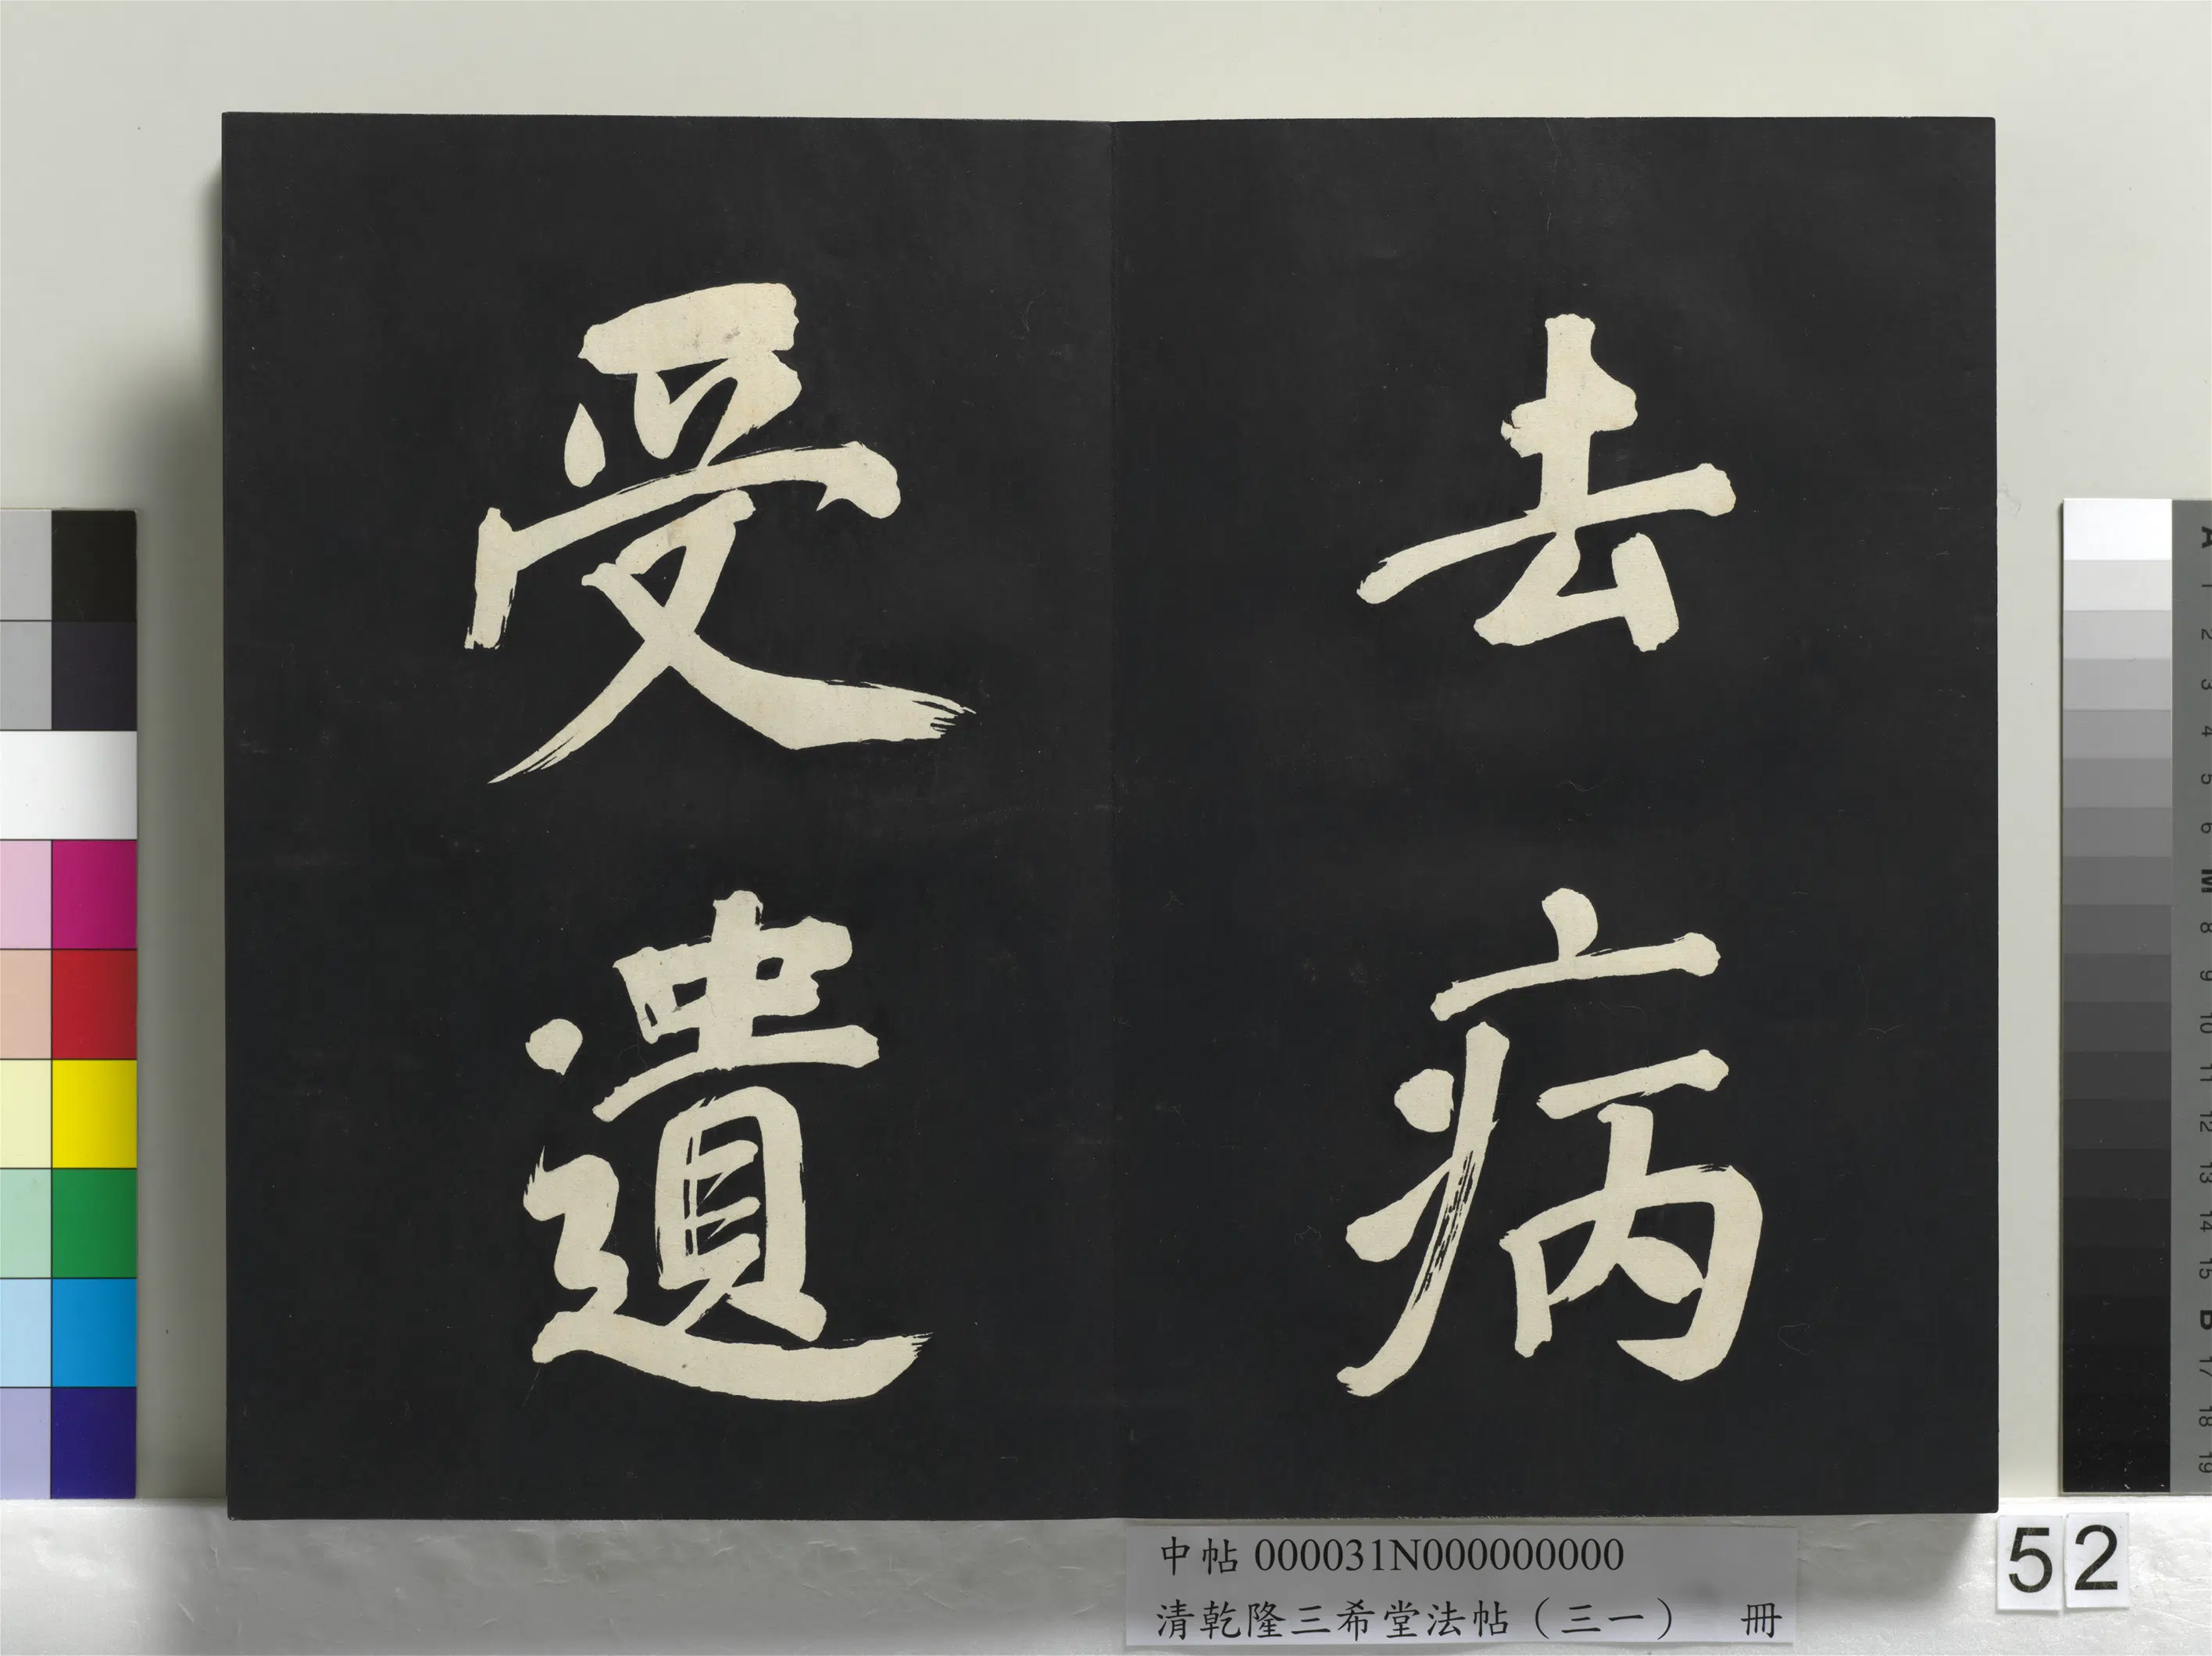 去病
受遺
中帖 000031N000000000
清乾隆三希堂法帖（三一） 冊
52
A
1
2
3
4
5
6
M
8
9
10
11
12
13
14
15
B
17
18
19